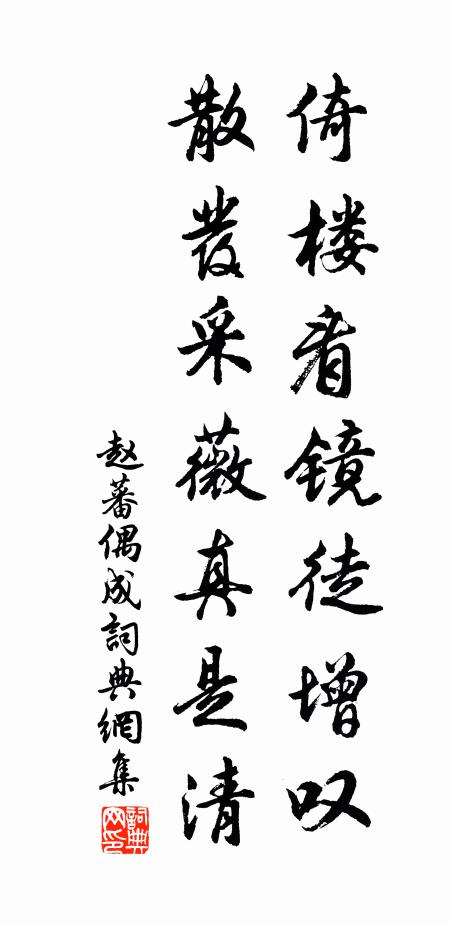 倚楼看镜徒增叹
散发采薇真是清
赵蕃偶成词典網集
詞典网印